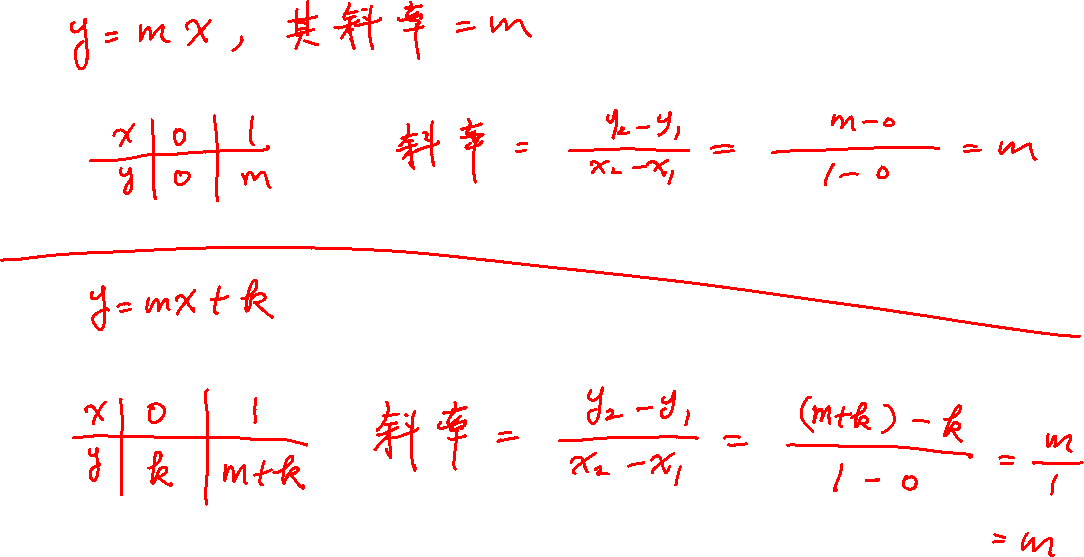 y = mx, 其斜率 = m
x | 0 | 1
y | 0 | m
斜率 = (y₂ - y₁)/(x₂ - x₁) = (m - 0)/(1 - 0) = m
y = mx + k
x | 0 | 1
y | k | m+k
斜率 = (y₂ - y₁)/(x₂ - x₁) = ((m+k) - k)/(1 - 0) = m/1
= m